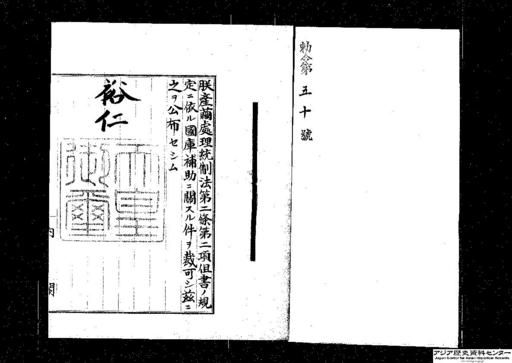 勅令第五十號
朕產繭處理統制法第二條第二項但書ノ規
定ニ依ル國庫補助ニ關スル件ヲ裁可シ茲ニ
之ヲ公布セシム
裕仁
天皇御璽
内閣
アジア歴史資料センター
Japan Center for Asian Historical Records